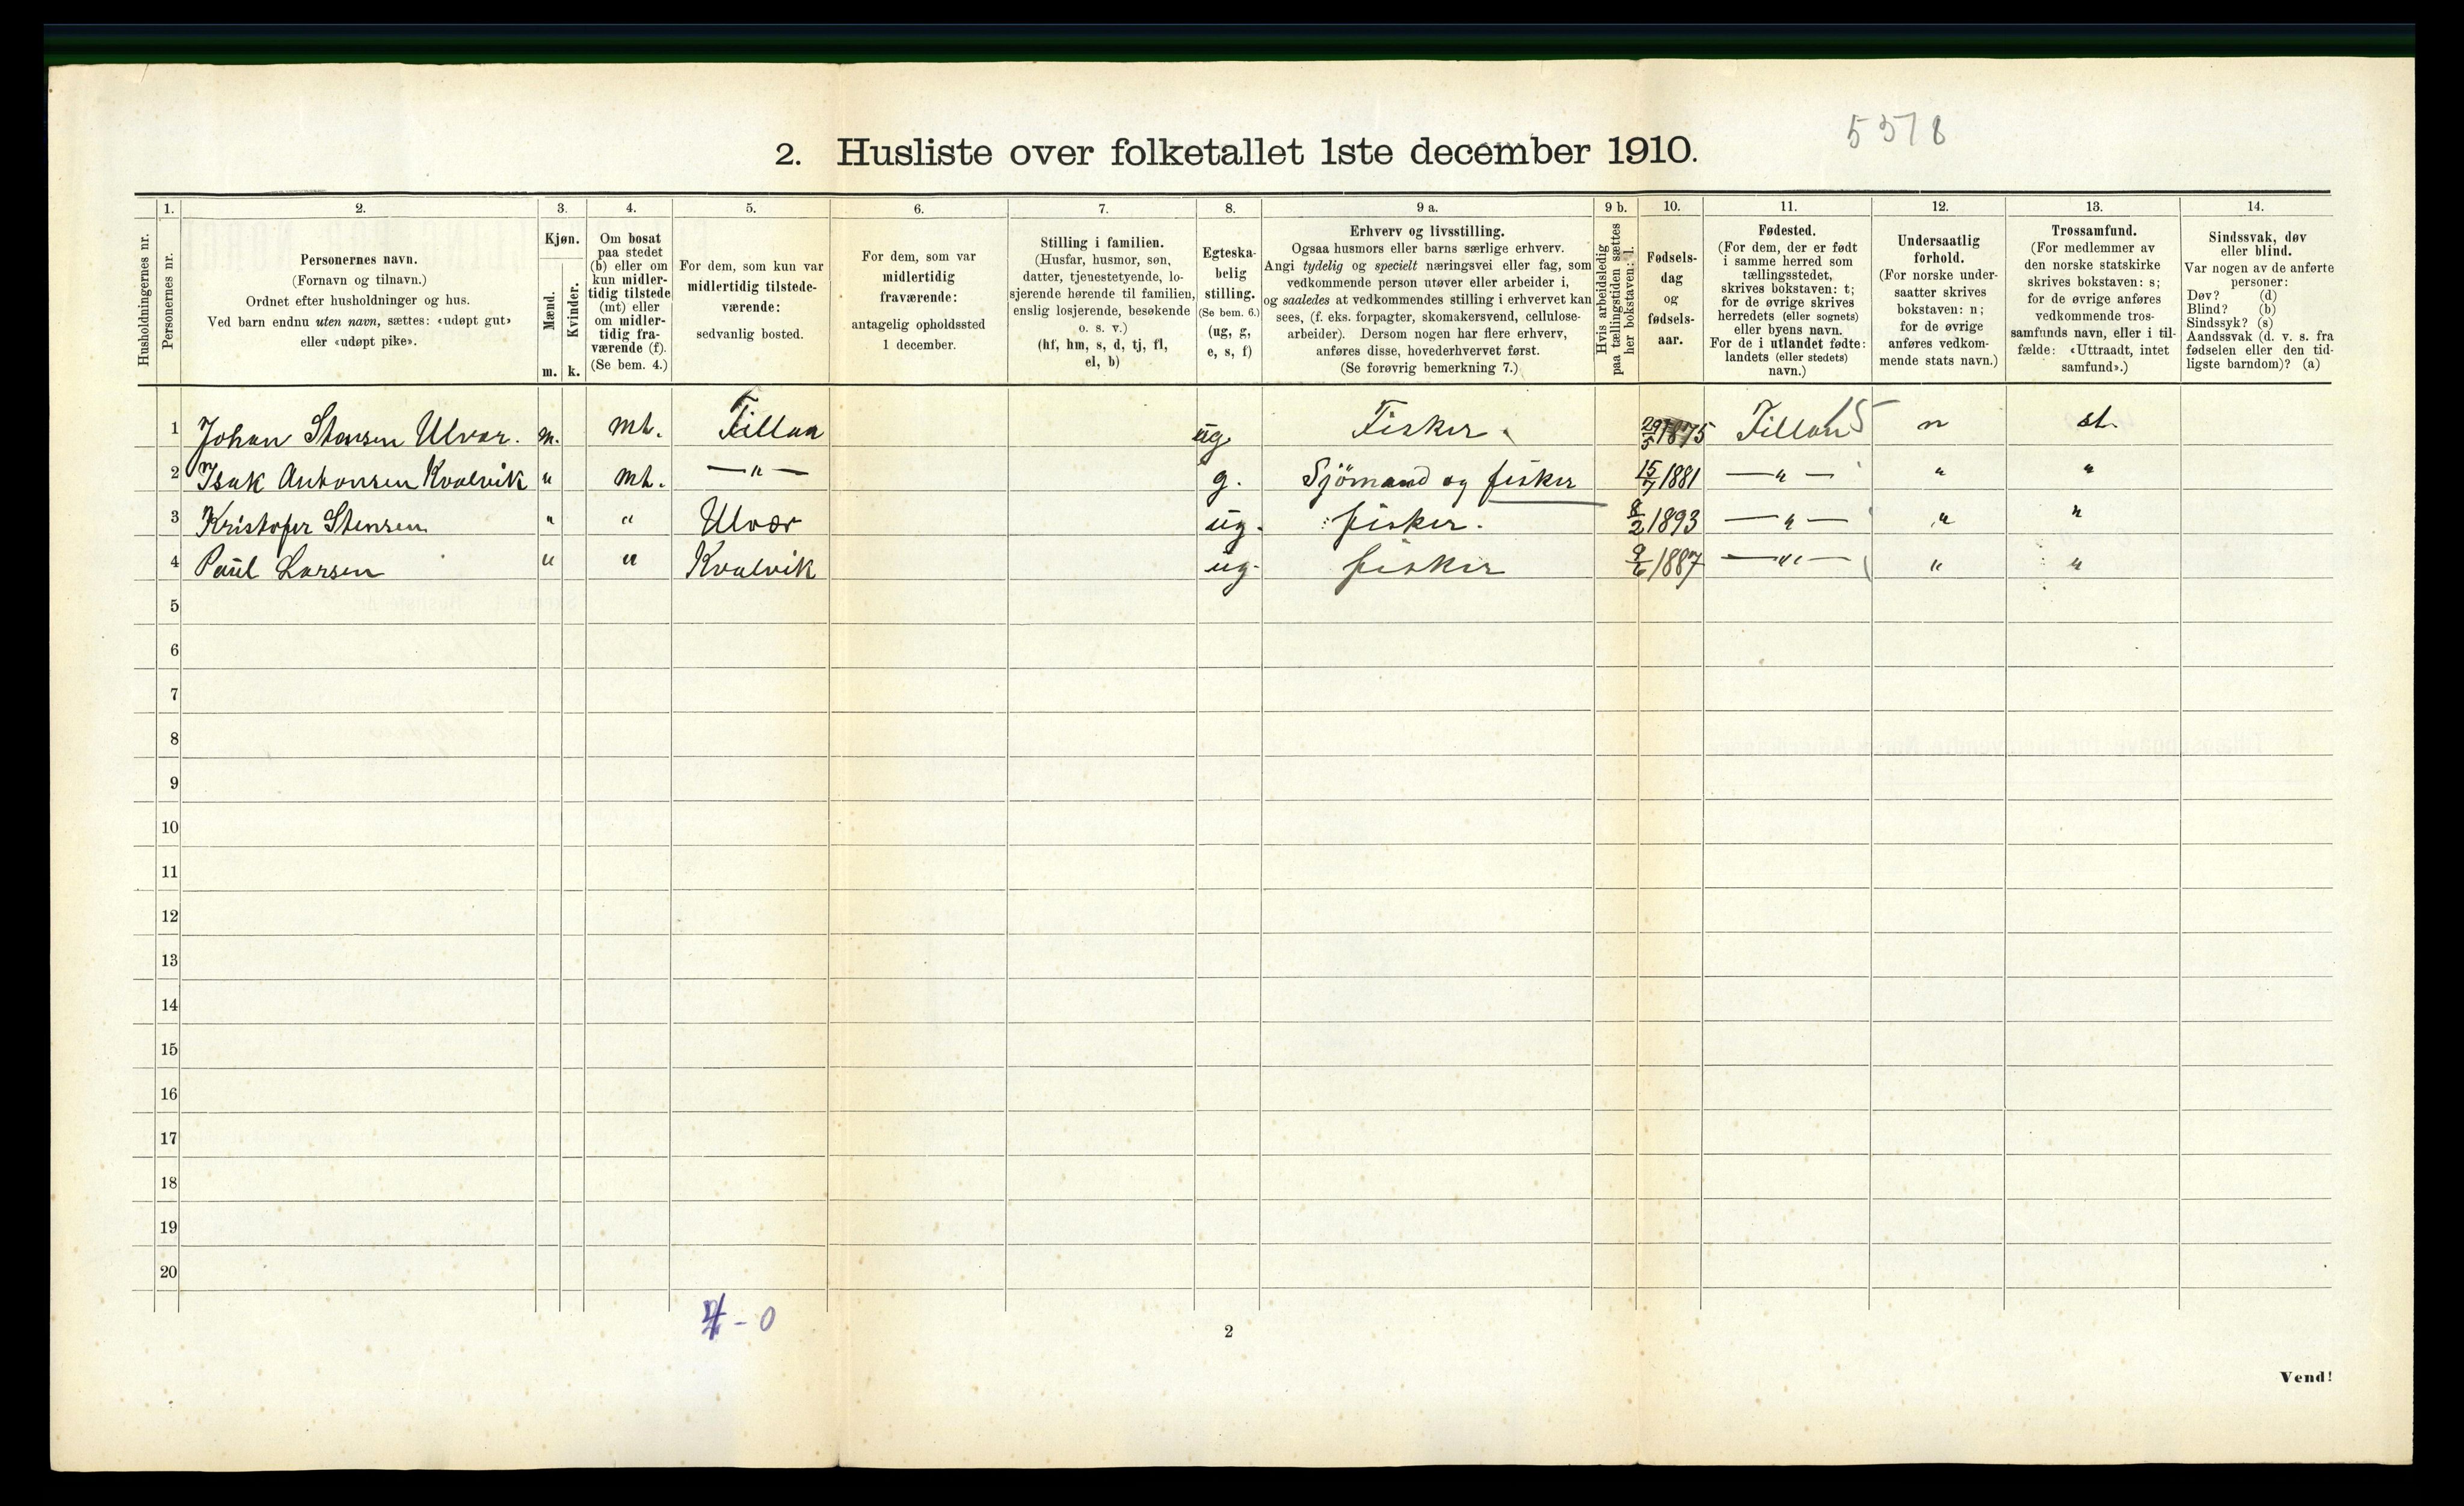 5378
2. Husliste over folketallet 1ste december 1910.
Husholdningernes nr.
1.
Personernes nr.
2.
Personernes navn.
(Fornavn og tilnavn.)
Ordnet efter husholdninger og hus.
Ved barn endnu uten navn, sættes: «udøpt gut»
eller «udøpt pike».
3.
Kjøn.
Mænd.
Kvinder.
m. k.
4.
Om bosat
paa stedet
(b) eller om
kun midler-
tidig tilstede
(mt) eller
om midler-
tidig fra-
værende (f).
(Se bem. 4.)
5.
For dem, som kun var
midlertidig tilstede-
værende:
sedvanlig bosted.
6.
For dem, som var
midlertidig
fraværende:
antagelig opholdssted
1 december.
7.
Stilling i familien.
(Husfar, husmor, søn,
datter, tjenestetyende, lo-
sjerende hørende til familien,
enslig losjerende, besøkende
o. s. v.)
(hf, hm, s, d, tj, fl,
el, b)
8.
Egteska-
belig
stilling.
(Se bem. 6.)
(ug, g,
e, s, f)
9 a.
Erhverv og livsstilling.
Ogsaa husmors eller barns særlige erhverv.
Angi tydelig og specielt næringsvei eller fag, som
vedkommende person utøver eller arbeider i,
og saaledes at vedkommendes stilling i erhvervet kan
sees, (f. eks. forpagter, skomakersvend, cellulose-
arbeider). Dersom nogen har flere erhverv,
anføres disse, hovederhvervet først.
(Se forøvrig bemerkning 7.)
9 b.
Hvis arbeidsledig
paa tællingstiden sættes
her bokstaven: l.
10.
Fødsels-
dag
og
fødsels-
aar.
11.
Fødested.
(For dem, der er født
i samme herred som
tællingsstedet,
skrives bokstaven: t;
for de øvrige skrives
herredets (eller sognets)
eller byens navn.
For de i utlandet fødte:
landets (eller stedets)
navn.)
12.
Undersaatlig
forhold.
(For norske under-
saatter skrives
bokstaven: n;
for de øvrige
anføres vedkom-
mende stats navn.)
13.
Trossamfund.
(For medlemmer av
den norske statskirke
skrives bokstaven: s;
for de øvrige anføres
vedkommende tros-
samfunds navn, eller i til-
fælde: «Uttraadt, intet
samfund».)
14.
Sindssvak, døv
eller blind.
Var nogen av de anførte
personer:
Døv? (d)
Blind? (b)
Sindssyk? (s)
Aandssvak (d. v. s. fra
fødselen eller den tid-
ligste barndom)? (a)
1 Johan Stensen Ulvær. m. mt. Fillan ug. Fisker. 29/5 1875 Fillan 15 n st.
2 Isak Antonsen Kvalvik " mt. — " — g. Sjömand og fisker 15/7 1881 — " — " "
3 Kristofer Stensen " " Ulvær ug. fisker. 8/2 1893 — " — " "
4 Paul Larsen " " Kvalvik ug. fisker 9/6 1887 — " — " "
5
6
7
8
9
10
11
12
13
14
15
16
17
18
19
20
4 - 0
2
Vend!